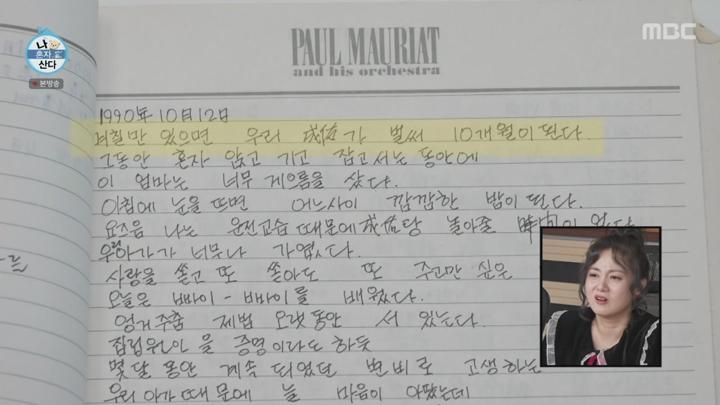 나 혼자 산다
본방송
MBC
PAUL MAURIAT
and his orchestra
1990年 10月 12日
며칠만 있으면 우리 成佑가 벌써 10개월이 된다.
그동안 혼자 앉고 기고 잡고 서는 동안에
이 엄마는 너무 게으름을 폈다.
아침에 눈을 뜨면 어느사이 깜깜한 밤이 된다.
요즈음 나는 운전교습 때문에 成佑랑 놀아줄 時間이 없다.
우리아가가 너무나 가엾다.
사랑을 쏟고 또 쏟아도 또 주고만 싶은
오늘은 빠빠이-빠빠이를 배웠다.
엉거주춤 제법 오랫동안 서 있는다.
을 증명이라도 하듯
몇달 동안 계속 되었던 변비로 고생하는
우리 아가 때문에 늘 마음이 아팠는데